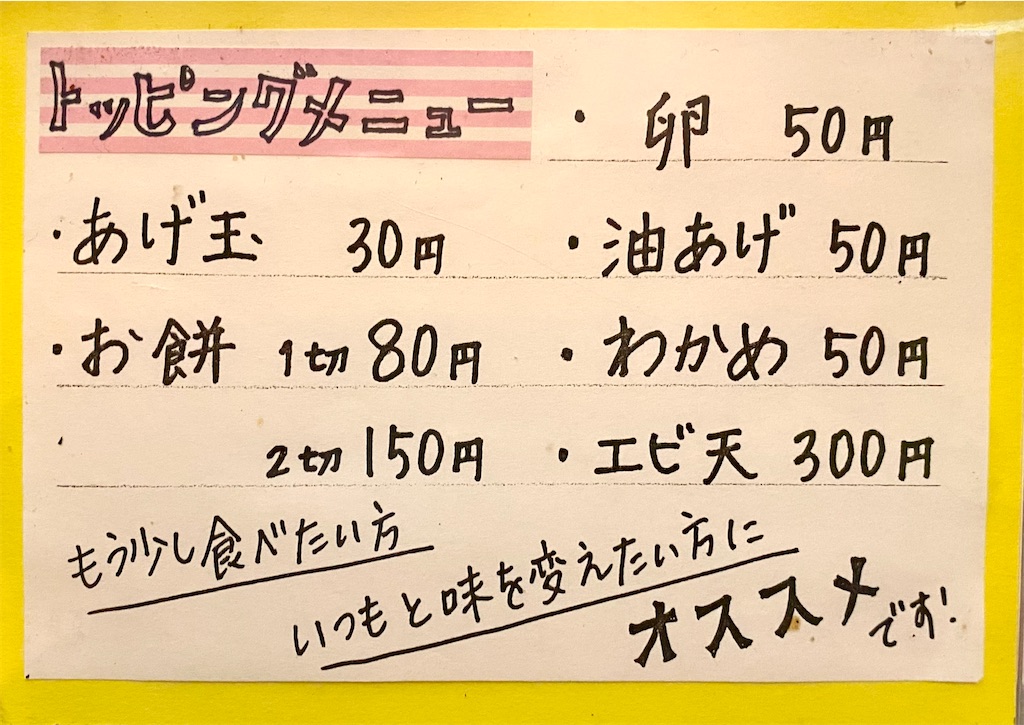 トッピングメニュー
・卵 50円
・あげ玉 30円
・油あげ 50円
・お餅 1切 80円
・わかめ 50円
・ 2切 150円
・エビ天 300円
もう少し食べたい方
いつもと味を変えたい方に
オススメです!